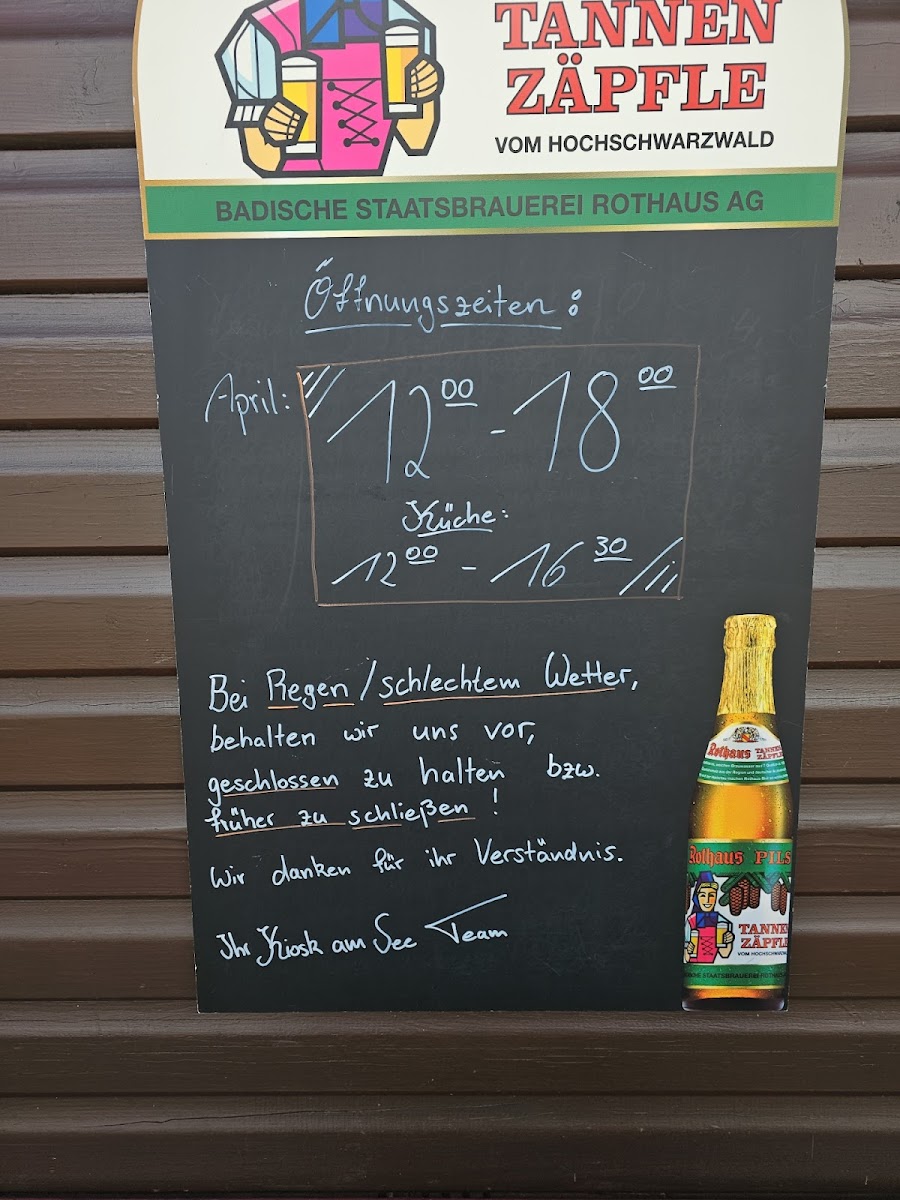 TANNEN
ZÄPFLE
VOM HOCHSCHWARZWALD
BADISCHE STAATSBRAUEREI ROTHAUS AG
Öffnungszeiten:
April: 12 00 - 18 00
Küche:
12 00 - 16 30
Bei Regen / schlechtem Wetter,
behalten wir uns vor,
geschlossen zu halten bzw.
früher zu schließen!
Wir danken für ihr Verständnis.
Ihr Kiosk am See Team
Rothaus TANNEN
ZÄPFLE
Rothaus PILS
TANNEN
ZÄPFLE
VOM HOCHSCHWARZWALD
STAATSBRAUEREI ROTHAUS